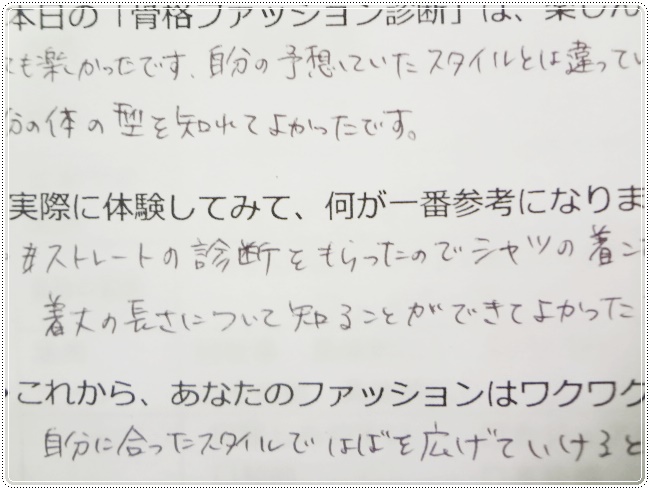 本日の「骨格ファッション診断」は、楽しん
も楽しかったです、自分の予想していたスタイルとは違ってい
分の体の型を知れてよかったです。
実際に体験してみて、何が一番参考になりま
#ストレートの診断をもらったのでシャツの着こ
着丈の長さについて知ることができてよかった
これから、あなたのファッションはワクワク
自分に合ったスタイルではばを広げていけると